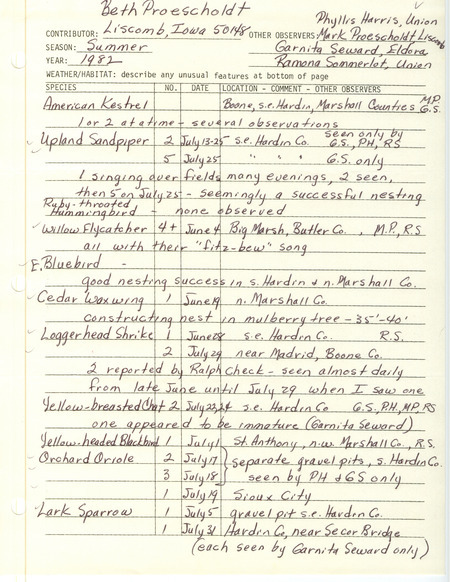 Beth Proescholdt
Phyllis Harris, Union
CONTRIBUTOR: Liscomb, Iowa 50148 OTHER OBSERVERS: Mark Proescholdt Liscomb
SEASON: Summer Garnita Seward, Eldora
YEAR: 1982 Ramona Sommerlot, Union
WEATHER/HABITAT: describe any unusual features at bottom of page
SPECIES NO. DATE LOCATION - COMMENT - OTHER OBSERVERS
American Kestrel Boone, s.e. Hardin, Marshall Counties M.P. G.S.
1 or 2 at a time - several observations
Upland Sandpiper 2 July 13-25 s.e. Hardin Co. seen only by G.S., PH, RS
5 July 25 " " " G.S. only
1 singing over fields many evenings, 2 seen,
then 5 on July 25 - seemingly a successful nesting
Ruby-throated
Hummingbird - none observed
Willow Flycatcher 4+ June 4 Big Marsh, Butler Co. , M.P., R.S
all with their "fitz-bew" song
E. Bluebird -
good nesting success in s. Hardin & n. Marshall Co.
Cedar Waxwing 1 June 19 n. Marshall Co.
constructing nest in mulberry tree - 35'-40'
Loggerhead Shrike 1 June 28 s.e. Hardin Co. R.S.
2 July 29 near Madrid, Boone Co.
2 reported by Ralph Check - seen almost daily
from late June until July 29 when I saw one
Yellow-breasted Chat 2 July 22,24 s.e. Hardin Co G.S., PH, MP, RS
one appeared to be immature (Garnita Seward)
Yellow-headed Blackbird 1 July 1 St. Anthony, n.w. Marshall Co., R.S.
Orchard Oriole 2 July 17 separate gravel pits, s. Hardin Co.
3 July 18 seen by PH & GS only
1 July 19 Sioux City
Lark Sparrow 1 July 5 gravel pit s.e. Hardin Co.
1 July 31 Hardin Co, near Secor Bridge
(each seen by Garnita Seward only)